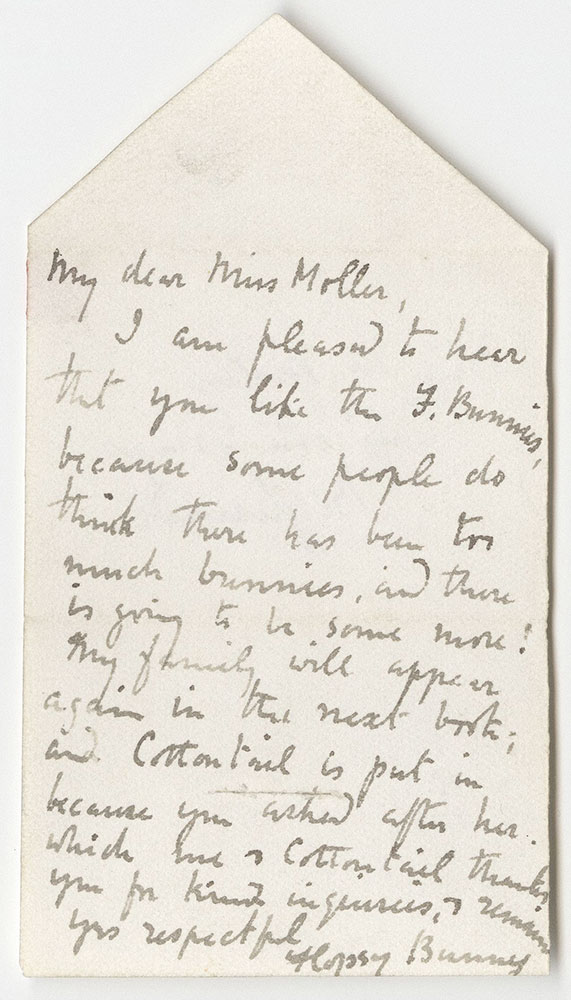 My dear Miss Moller,
I am pleased to hear
that you like the F. Bunnies,
because some people do
think there has been too
much bunnies, and there
is going to be some more!
My family will appear
again in the next book;
and Cottontail is put in
because you asked after her.
which me & Cottontail thanks
you for kind inquiries, & remain
yrs respectful
Flopsy Bunny